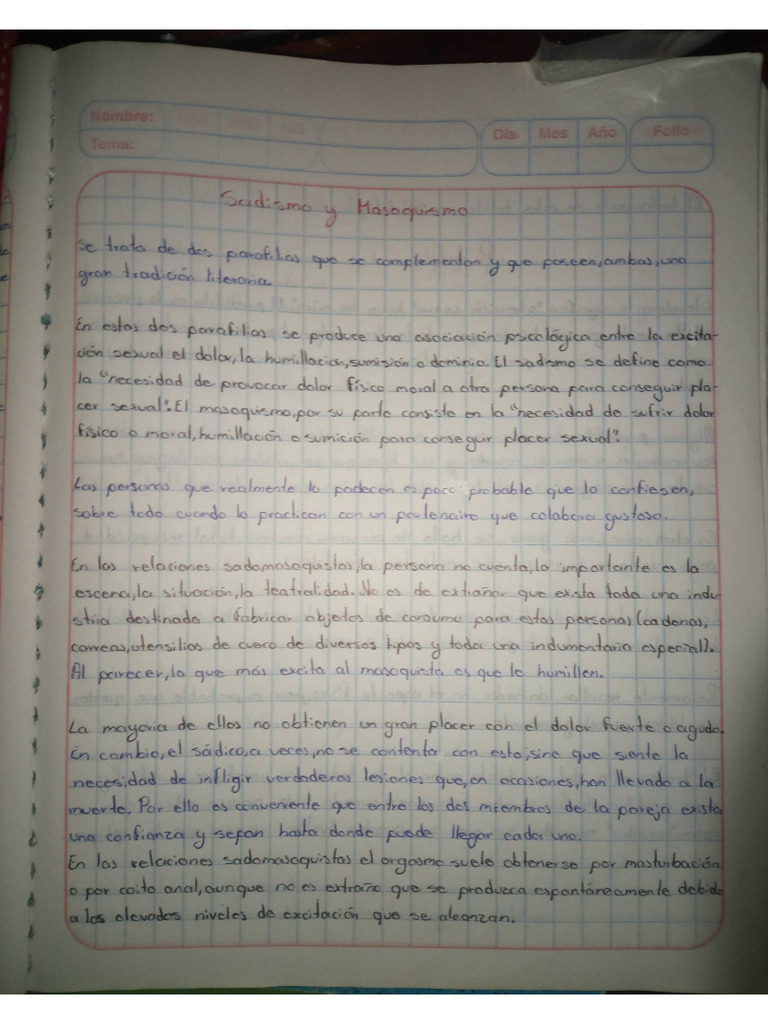 Nombre:
Tema:
Día Mes Año Folio
Sadismo y Masoquismo
Se trata de dos parafilias que se complementan y que poseen, ambas, una
gran tradición literaria.
En estas dos parafilias se produce una asociación psicológica entre la excita-
ción sexual el dolor, la humillación, sumisión o dominio. El sadismo se define como
la "necesidad de provocar dolor físico moral a otra persona para conseguir pla-
cer sexual". El masoquismo, por su parte consiste en la "necesidad de sufrir dolor
físico o moral, humillación o sumición para conseguir placer sexual".
Las personas que realmente lo padecen es poco probable que lo confiesen,
sobre todo cuando lo practican con un partenaire que colabora gustoso.
En las relaciones sadomasoquistas, la persona no cuenta, lo importante es la
escena, la situación, la teatralidad. No es de extrañar que exista toda una indu
stria destinada a fabricar objetos de consumo para estas personas (cadenas,
correas, utensilios de cuero de diversos tipos y toda una indumentaria especial).
Al parecer, lo que más excita al masoquista es que lo humillen.
La mayoria de ellos no obtienen un gran placer con el dolor fuerte o agudo.
En cambio, el sádico, a veces, no se contenta con esto, sino que siente la
necesidad de infligir verdaderas lesiones que, en ocasiones, han llevado a la
muerte. Por ello es conveniente que entre los dos miembros de la pareja exista
una confianza y sepan hasta donde puede llegar cada uno.
En las relaciones sadomasoquistas el orgasmo suele obtenerse por masturbación
o por coito anal, aunque no es extraño que se produzca espontáneamente debido
a los elevados niveles de excitación que se alcanzan.